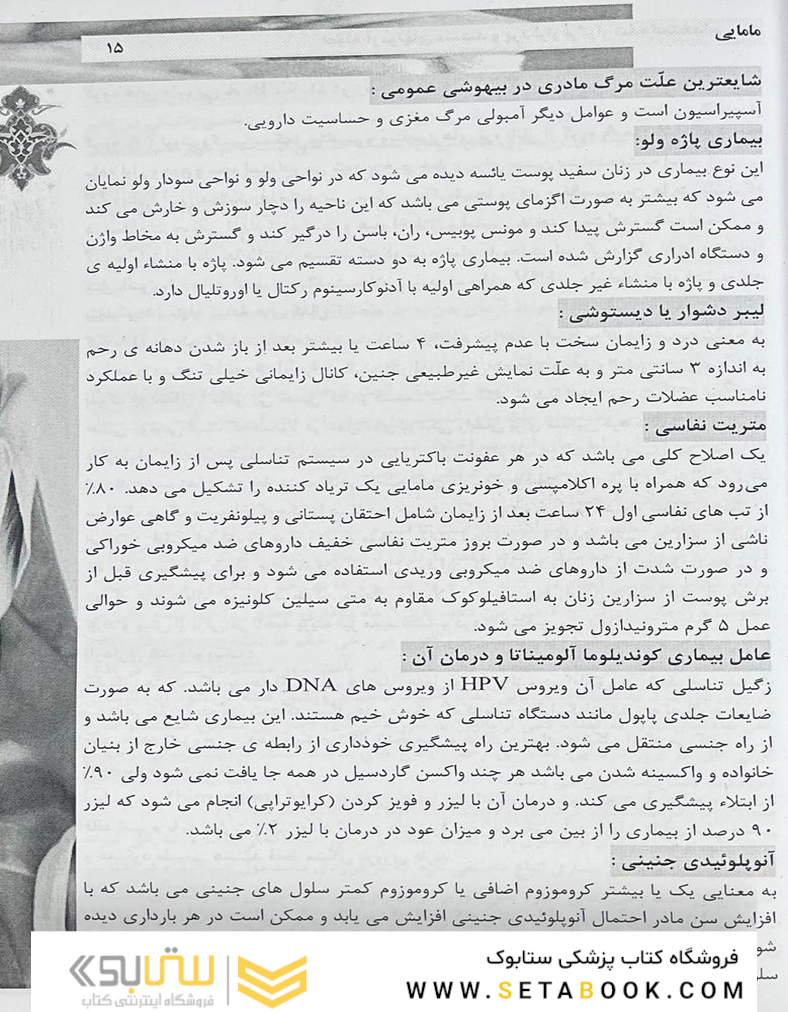 مامایی
۱۵
شایعترین علّت مرگ مادری در بیهوشی عمومی :
آسپیراسیون است و عوامل دیگر آمبولی مرگ مغزی و حساسیت دارویی.
بیماری پاژه ولو:
این نوع بیماری در زنان سفید پوست یائسه دیده می شود که در نواحی ولو و نواحی سودار ولو نمایان
می شود که بیشتر به صورت اگزمای پوستی می باشد که این ناحیه را دچار سوزش و خارش می کند
و ممکن است گسترش پیدا کند و مونس پوبیس، ران، باسن را درگیر کند و گسترش به مخاط واژن
و دستگاه ادراری گزارش شده است. بیماری پاژه به دو دسته تقسیم می شود. پاژه با منشاء اولیه ی
جلدی و پاژه با منشاء غیر جلدی که همراهی اولیه با آدنوکارسینوم رکتال یا اوروتلیال دارد.
لیبر دشوار یا دیستوشی :
به معنی درد و زایمان سخت با عدم پیشرفت، ۴ ساعت یا بیشتر بعد از باز شدن دهانه ی رحم
به اندازه ۳ سانتی متر و به علّت نمایش غیرطبیعی جنین، کانال زایمانی خیلی تنگ و با عملکرد
نامناسب عضلات رحم ایجاد می شود.
متریت نفاسی :
یک اصلاح کلی می باشد که در هر عفونت باکتریایی در سیستم تناسلی پس از زایمان به کار
می‌رود که همراه با پره اکلامپسی و خونریزی مامایی یک تریاد کننده را تشکیل می دهد. ۸۰٪
از تب های نفاسی اول ۲۴ ساعت بعد از زایمان شامل احتقان پستانی و پیلونفریت و گاهی عوارض
ناشی از سزارین می باشد و در صورت بروز متریت نفاسی خفیف داروهای ضد میکروبی خوراکی
و در صورت شدت از داروهای ضد میکروبی وریدی استفاده می شود و برای پیشگیری قبل از
برش پوست از سزارین زنان به استافیلوکوک مقاوم به متی سیلین کلونیزه می شوند و حوالی
عمل ۵ گرم مترونیدازول تجویز می شود.
عامل بیماری کوندیلوما آلومیناتا و درمان آن :
زگیل تناسلی که عامل آن ویروس HPV از ویروس های DNA دار می باشد. که به صورت
ضایعات جلدی پاپول مانند دستگاه تناسلی که خوش خیم هستند. این بیماری شایع می باشد و
از راه جنسی منتقل می شود. بهترین راه پیشگیری خودداری از رابطه ی جنسی خارج از بنیان
خانواده و واکسینه شدن می باشد هر چند واکسن گاردسیل در همه جا یافت نمی شود ولی ۹۰٪
از ابتلاء پیشگیری می کند. و درمان آن با لیزر و فویز کردن (کرایوتراپی) انجام می شود که لیزر
۹۰ درصد از بیماری را از بین می برد و میزان عود در درمان با لیزر ۲٪ می باشد.
آنوپلوئیدی جنینی :
به معنایی یک یا بیشتر کروموزوم اضافی یا کروموزوم کمتر سلول های جنینی می باشد که با
افزایش سن مادر احتمال آنوپلوئیدی جنینی افزایش می یابد و ممکن است در هر بارداری دیده
فروشگاه کتاب پزشکی ستابوک
WWW.SETABOOK.COM
ستابوک
فروشگاه اینترنتی کتاب